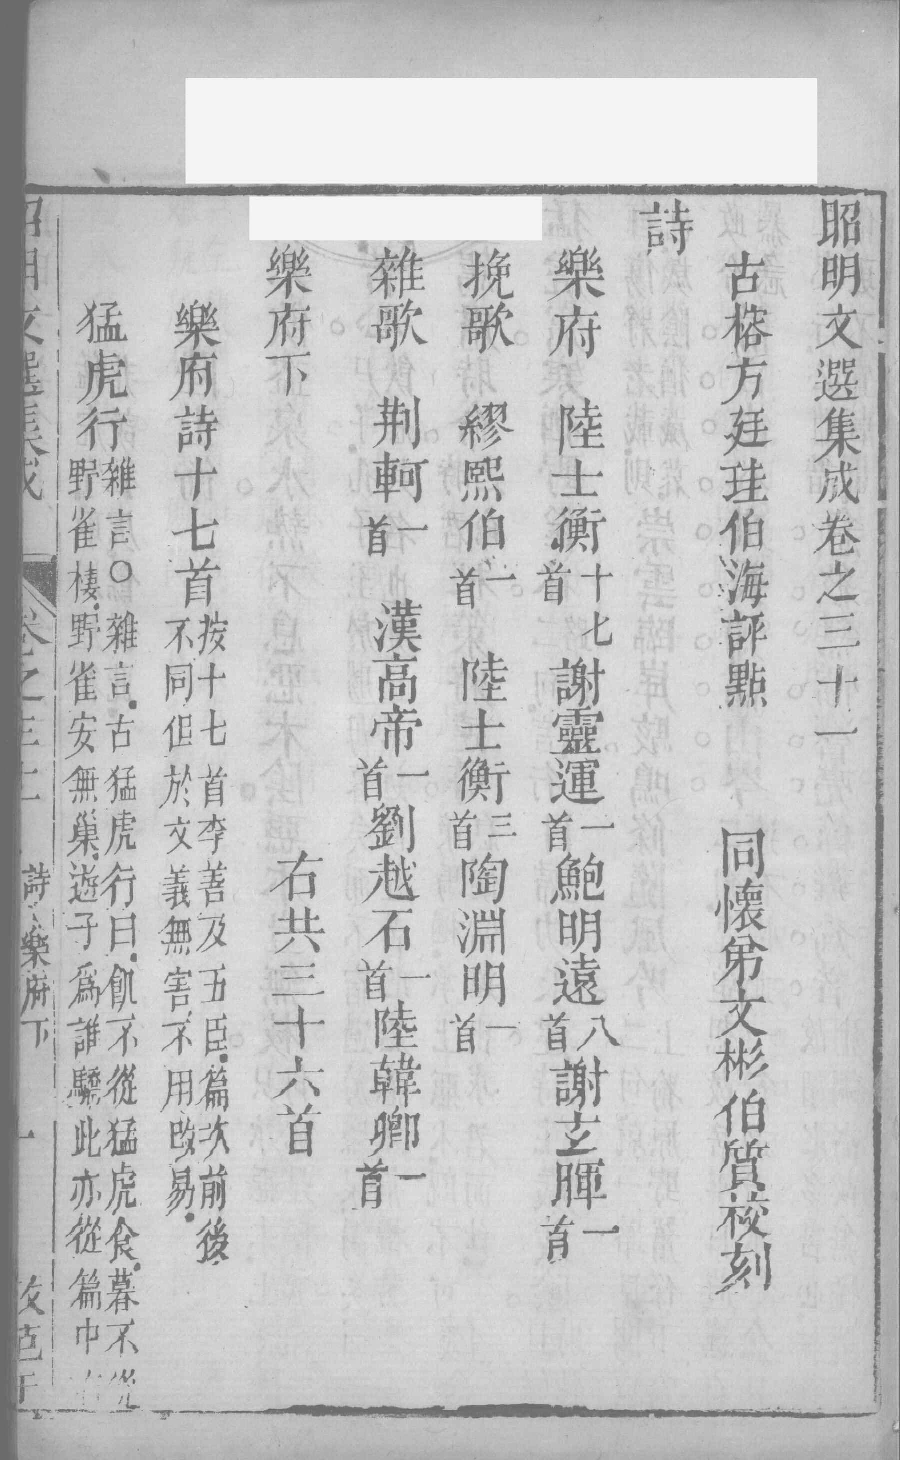 昭明文選集成卷之三十一
古榕方廷珪伯海評點　同懷弟文彬伯質校刻
詩
樂府　陸士衡十七首謝靈運一首鮑明遠八首謝玄暉一首
挽歌　繆熙伯一首　陸士衡三首陶淵明一首
雜歌　荆軻一首　漢高帝一首劉越石一首陸韓卿一首
樂府下　右共三十六首
樂府詩十七首按十七首李善及五臣篇次前後
不同但於文義無害不用改易
猛虎行雜言○雜言古猛虎行曰飢不從猛虎食暮不從
野雀棲野雀安無巢遊子爲誰驕此亦從篇中
昭明文選集成　卷之三十一　詩樂府下　一